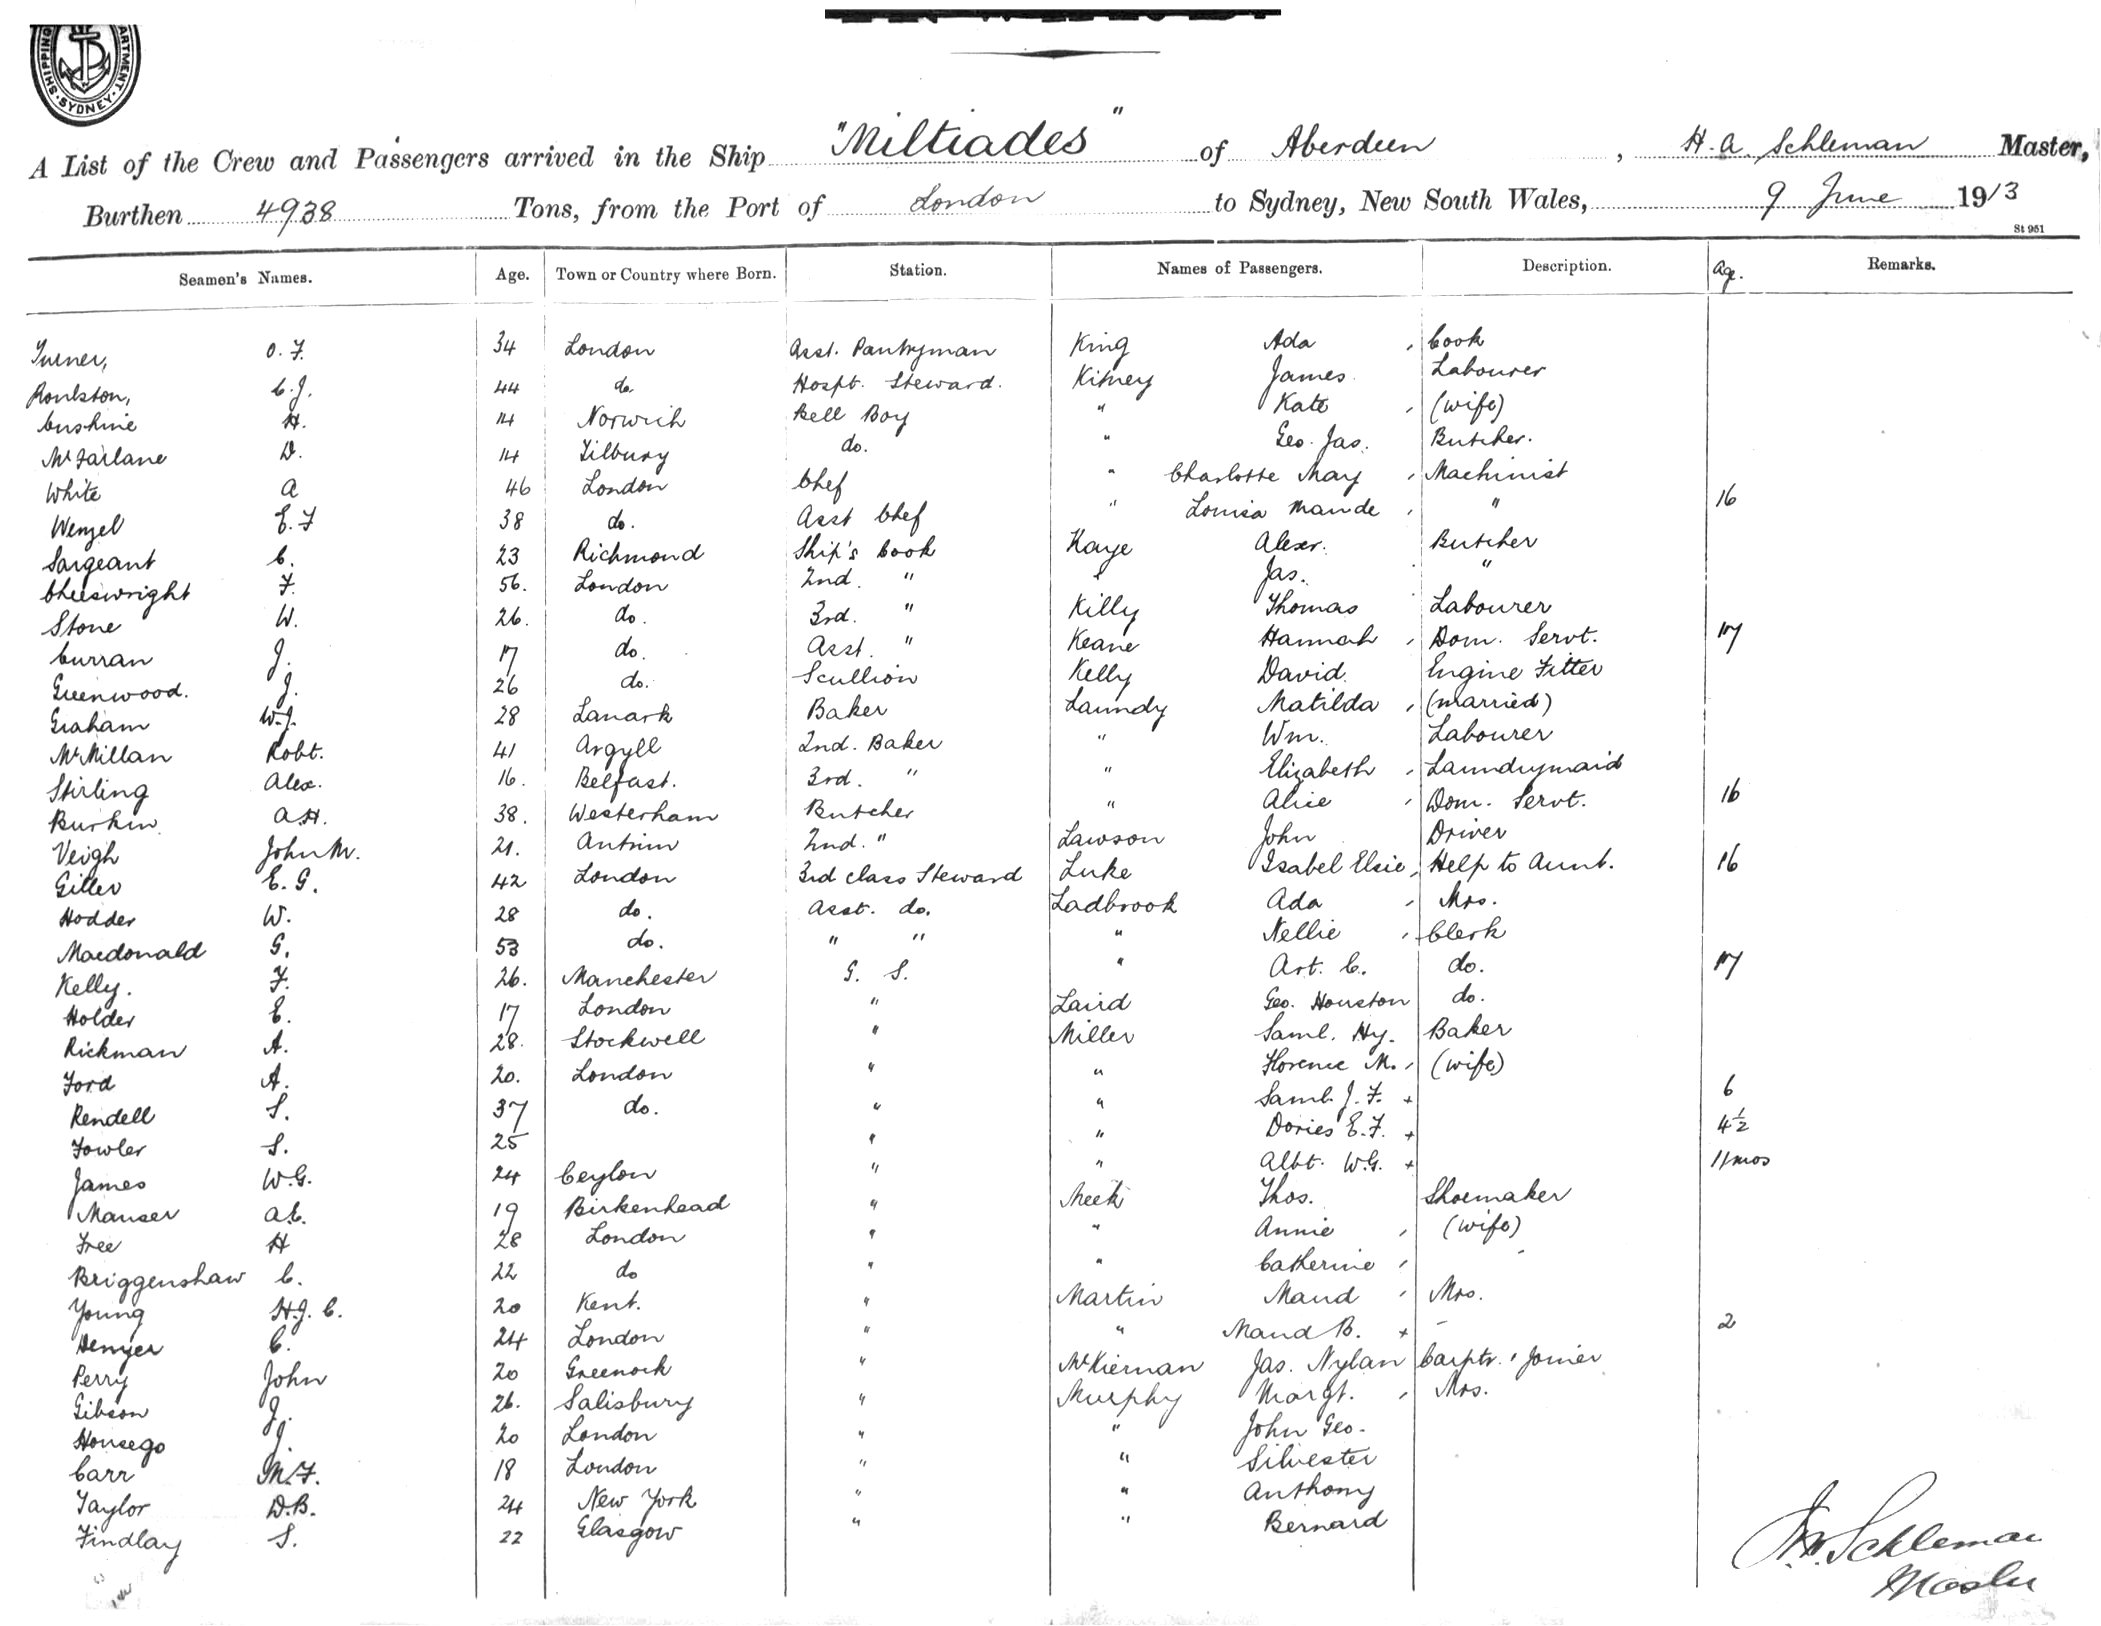 SHIPPING DEPARTMENT SYDNEY
A List of the Crew and Passengers arrived in the Ship "Miltiades" of Aberdeen, H. A. Schleman Master,
Burthen 4938 Tons, from the Port of London to Sydney, New South Wales, 9 June 1913
St 951
Seamen's Names. Age. Town or Country where Born. Station. Names of Passengers. Description. Age. Remarks.
Turner, O. F. 34 London Asst. Pantryman King Ada Cook
Roulston, C. J. 44 do. Hospt. Steward. Kitney James Labourer
Cushine H. 14 Norwich Bell Boy " Kate (wife)
McFarlane D. 14 Tilbury do. " Geo. Jas. Butcher.
White A 46 London Chef " Charlotte May Machinist
Wenzel E. F 38 do. Asst Chef " Louisa Maude " 16
Sargeant C. 23 Richmond Ship's Cook Kaye Alexr. Butcher
Cheeswright F. 56. London 2nd. " " Jas. "
Stone W. 26. do. 3rd. " Killy Thomas Labourer
Curran J. 17 do. Asst. " Keane Hannah Dom. Servt. 17
Greenwood. J. 26 do. Scullion Kelly David Engine Fitter
Graham W. J. 28 Lanark Baker Laundy Matilda (married)
McMillan Robt. 41 Argyll 2nd. Baker " Wm. Labourer
Stirling Alex. 16. Belfast. 3rd. " " Elizabeth Laundrymaid
Burkin A. H. 38. Westerham Butcher " Alice Dom. Servt. 16
Veigh John M. 21. Antrim 2nd. " Lawson John Driver
Giller E. G. 42 London 3rd class Steward Luke Isabel Elsie Help to Aunt. 16
Hodder W. 28 do. Asst. do. Ladbrook Ada Mrs.
Macdonald G. 53 do. " " " Nellie Clerk
Kelly. F. 26. Manchester G. S. " Art. C. do. 17
Holder E. 17 London " Laird Geo. Houston do.
Rickman A. 28. Stockwell " Miller Saml. Hy. Baker
Ford A. 20. London " " Florence M. (wife)
Rendell S. 37 do. " " Saml. J. F. + 6
Fowler S. 25 " " Dories E. F. + 4½
James W. G. 24 Ceylon " " Albt. W. G. + 11 mos
Manser A. E. 19 Birkenhead " Meek Thos. Shoemaker
Free H 28 London " " Annie (wife)
Briggenshaw C. 22 do " " Catherine
Young H. J. C. 20 Kent. " Martin Maud Mrs.
Denyer C. 24 London " " Maud B. + - 2
Perry John 20 Greenock " McKiernan Jas. Nylan Carptr. & Joiner
Gibson J. 26. Salisbury " Murphy Margt. Mrs.
Housego J. 20 London " " John Geo.
Carr M. F. 18 London " " Silvester
Taylor D. B. 24 New York " " Anthony
Findlay S. 22 Glasgow " " Bernard
Schleman
Master